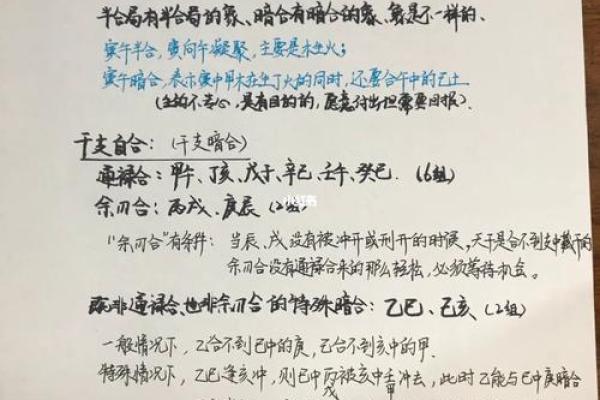 半合局有半合局的象、暗合有暗合的象、象是不一样的、
寅午半合，寅向午凝聚，主要是木生火；
寅午暗合，表示寅中甲木在生丁火的同时，还要合午中的己土
(生的不专心，是有目的的，愿意付出但需要回报)．
干支自合：(干支暗合)
通禄合：甲午、丁亥、戊子、辛巳、壬午、癸巳．(6组)
余刃合：丙戌、庚辰 (2组)
小红书
"余刃合"有条件：当辰、戌没有被冲开或刑开的时候，天干是合不到支中藏干的
余刃合没有通禄合来的那么轻松，必须等待机会。
既非通禄合、也非余刃合的特殊暗合：乙巳、己亥、(2组)
一般情况下，乙合不到巳中的庚，己合不到亥中的甲．
特殊情况下，乙巳逢亥冲，则巳中丙被亥中壬冲去，此时乙能与巳中庚暗合
戊 甲